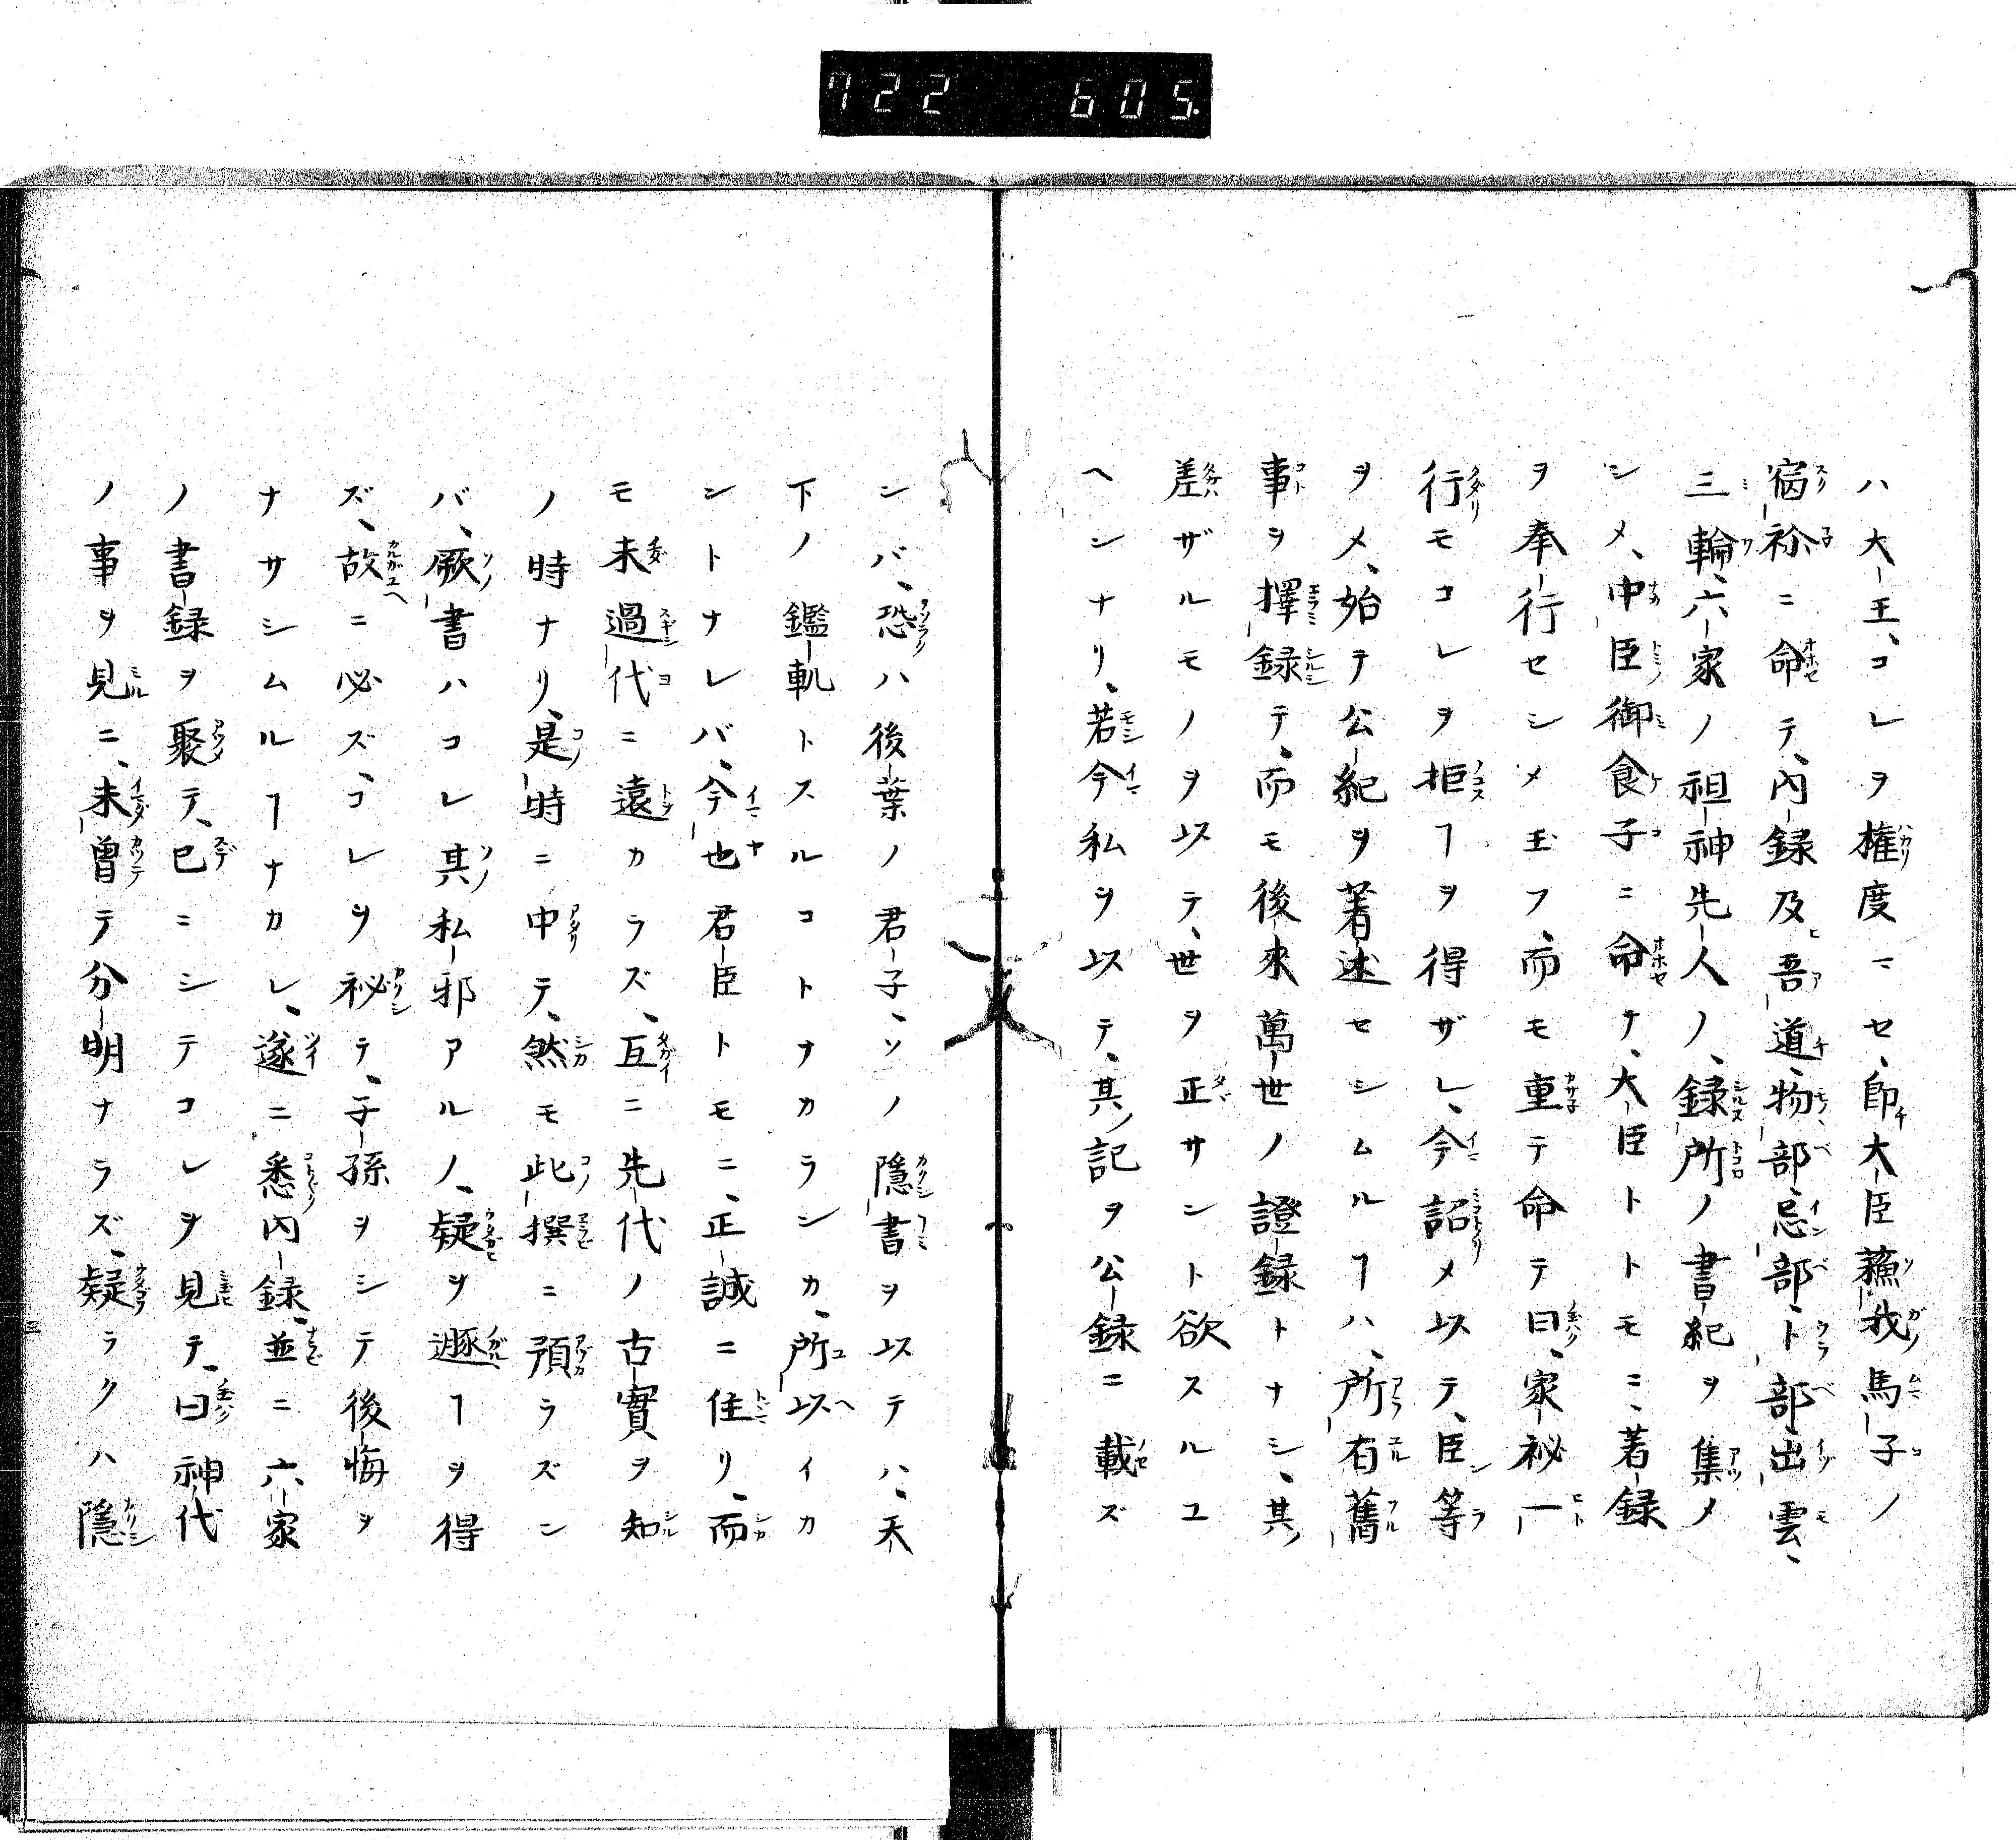 722 605.
ハ大王、コレヲ権度マセ、即大臣蘓我馬子ノ
宿祢ニ命テ、内録及吾道、物部、忌部、卜部、出雲、
三輪、六家ノ祖神先人ノ、録所ノ書紀ヲ集メ
シメ、中臣御食子ニ命テ、大臣トトモニ、著録
ヲ奉行セシメ玉フ、而モ重テ命テ曰、家秘一
行モコレヲ拒ヿヲ得ザレ、今詔メ以テ、臣等
ヲメ、始テ公紀ヲ著述セシムルヿハ、所有舊
事ヲ擇録テ、而モ後来萬世ノ證録トナシ、其
差ザルモノヲ以テ、世ヲ正サント欲スルユ
ヘシナリ、若今私ヲ以テ、其記ヲ公録ニ載ズ
ンバ、恐ハ後葉ノ君子、ソノ隠書ヲ以テハ、天
下ノ鑑軌トスルコトナカランカ、所以イカ
ントナレバ、今也君臣トモニ、正誠ニ住リ、而
モ未過代ニ遠カラズ、互ニ先代ノ古實ヲ知
ノ時ナリ、是時ニ中テ、然モ此撰ニ預ラズン
バ、厥書ハコレ其私邪アルノ、疑ヲ遯ヿヲ得
ズ、故ニ必ズ、コレヲ秘テ、子孫ヲシテ後悔ヲ
ナサシムルヿナカレ、遂ニ悉内録、並ニ六家
ノ書録ヲ聚テ、已ニシテコレヲ見テ、曰神代
ノ事ヲ見ニ、未曽テ分明ナラズ、疑ラクハ隠
三